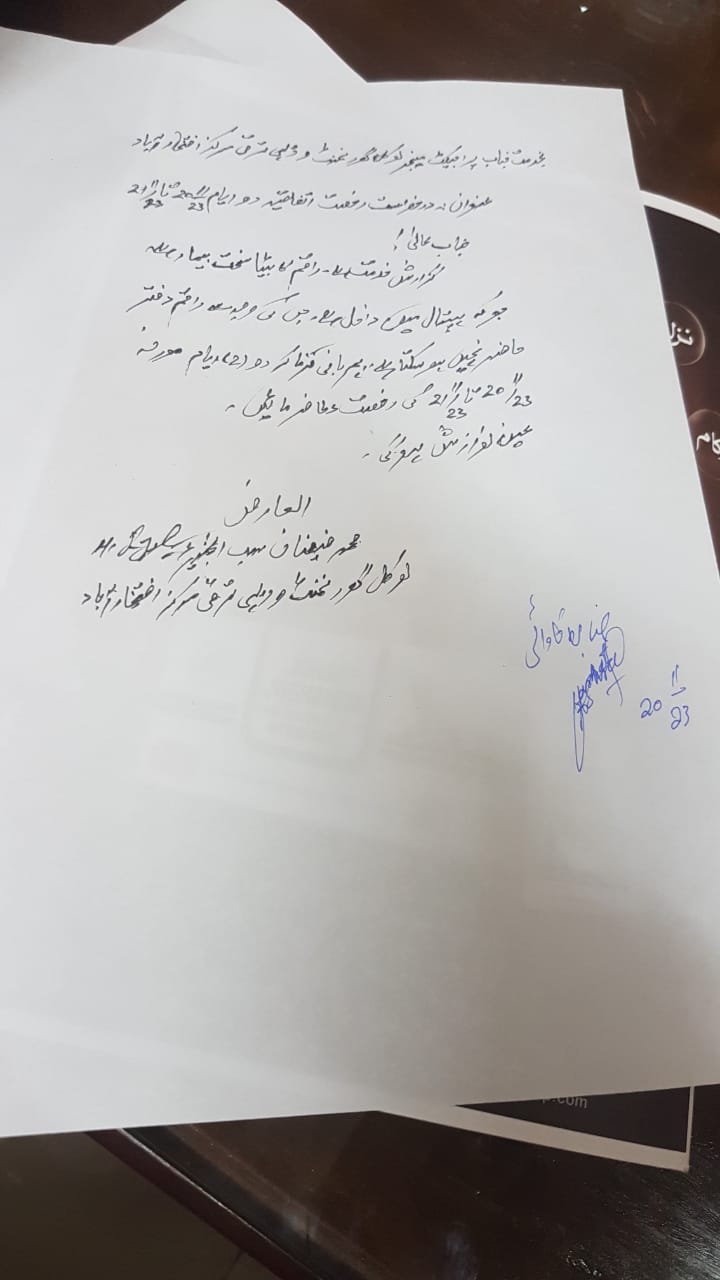 بخدمت جناب پراجیکٹ مینجر لوکل گورنمنٹ و دیہی ترقی مرکز افتخار آباد
عنوان:۔ درخواست رخصت اتفاقیہ دو ایام 20/11/23 تا 21/11/23
جناب عالیٰ!
گزارش خدمت ہے۔ راقم کا بیٹا سخت بیمار ہے
جو کہ ہسپتال میں داخل ہے۔ جس کی وجہ سے راقم دفتر
حاضر نہیں ہو سکتا ہے۔ مہربانی فرما کر دو (2) ایام مورخہ
20/11/23 تا 21/11/23 کی رخصت عطا فرمائیں۔
عین نوازش ہو گی۔
العارض
محمد سب انجینئر
لوکل گورنمنٹ و دیہی ترقی مرکز افتخار آباد
ضابطہ کاروائی
20/11/23
نزل
کام
.com